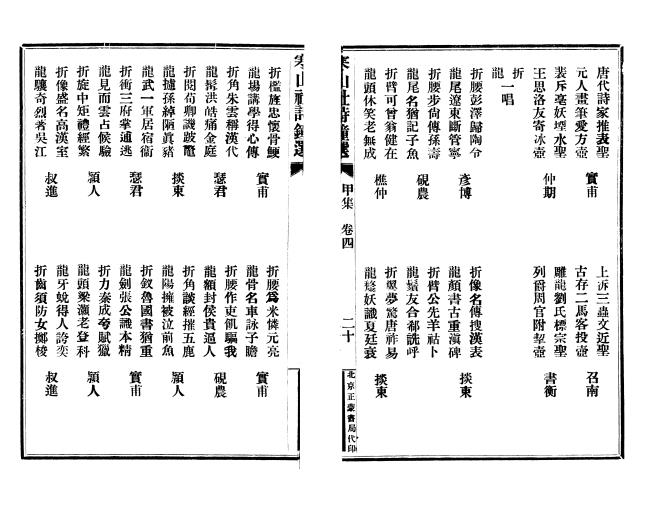 唐代詩家推表聖
元人畫筆愛方壺 實甫
上訴三蟲文近聖
古存二馬客投壺 召南
裴斥毫妖堙水聖
王思洛友寄冰壺 仲期
雕龍劉氏標宗聖
列爵周官附挈壺 書衡
折
龍 一唱
折腰彭澤歸陶令
龍尾遼東斷管寧 彥博
折像名傳搜漢表
龍顏書古重滇碑 掞東
折腰步尚傳孫壽
龍尾名猶記子魚 硯農
折臂公先羊祜卜
龍鬚友合郗詵呼
折臂可曾翁健在
龍頭休笑老無成 樵仲
折翼夢驚唐祚易
龍漦妖讖夏廷衰 掞東
寒山社詩鐘選 甲集 卷四 二十 北京正蒙書局代印
寒山社詩鐘選
折檻旌忠懷骨鯁
龍場講學得心傳 實甫
折腰爲米憐元亮
龍骨名車詠子瞻 實甫
折角朱雲稱漢代
龍髯洪皓痛金庭 瑟君
折腰作吏飢驅我
龍額封侯貴逼人 硯農
折閱荀卿譏跛鼈
龍攄孫綽陋眞豬 掞東
折角談經摧五鹿
龍陽擁被泣前魚 穎人
龍武一軍居宿衞
折衝三府掌逋逃 瑟君
折釵魯國書猶重
龍劍張公識本精 實甫
龍見而雩占候驗
折旋中矩禮經繁 穎人
折力泰成夸賦獵
龍頭梁灝老登科 穎人
折像盛名高漢室
龍驤奇烈著吳江 叔進
龍牙蛻得人誇奕
折齒須防女擲梭 叔進